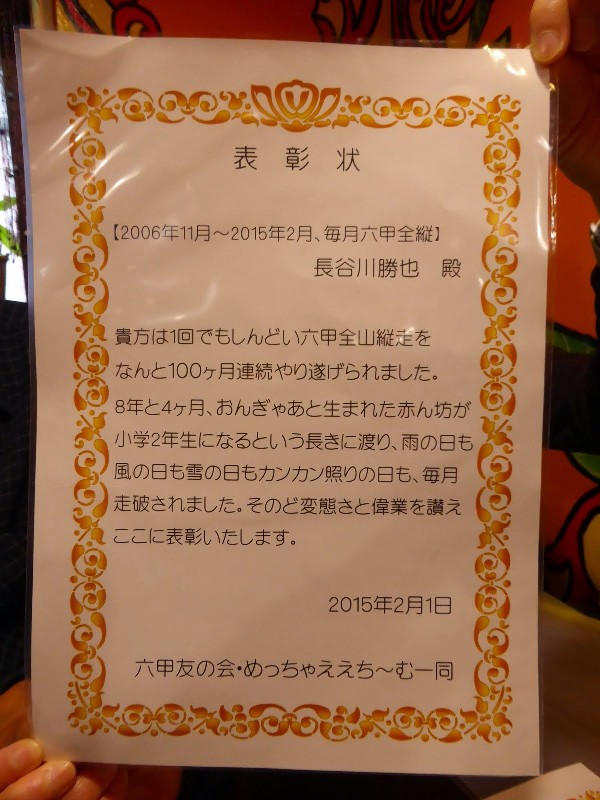 表 彰 状
【2006年11月～2015年2月、毎月六甲全縦】
長谷川勝也　殿
貴方は1回でもしんどい六甲全山縦走を
なんと100ヶ月連続やり遂げられました。
8年と4ヶ月、おんぎゃあと生まれた赤ん坊が
小学2年生になるという長きに渡り、雨の日も
風の日も雪の日もカンカン照りの日も、毎月
走破されました。そのど変態さと偉業を讃え
ここに表彰いたします。
2015年2月1日
六甲友の会・めっちゃええち～む一同